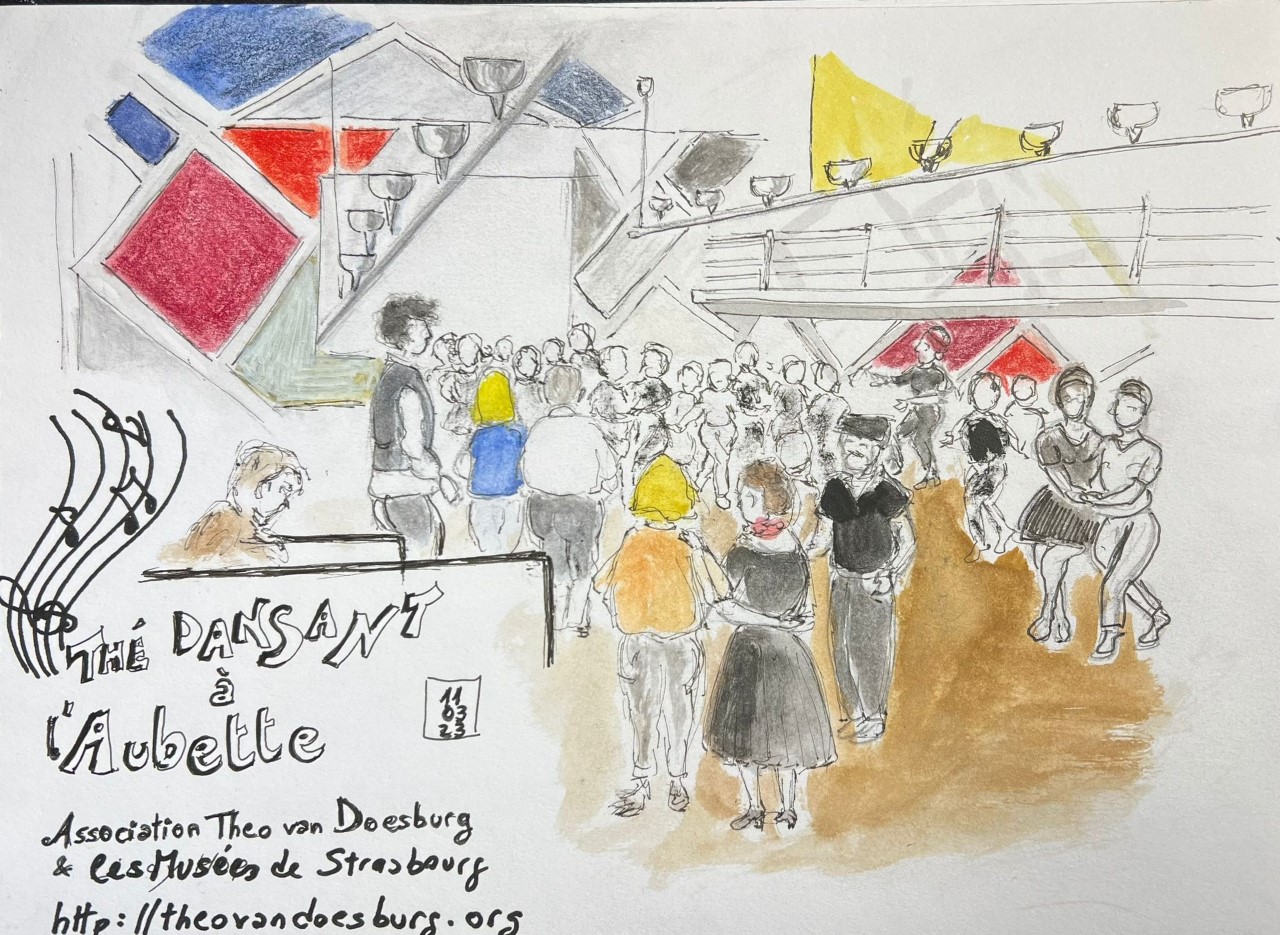 THÉ DANSANT
à
l'Aubette
11
03
23
Association Theo van Doesburg
& les Musées de Strasbourg
http://theovandoesburg.org